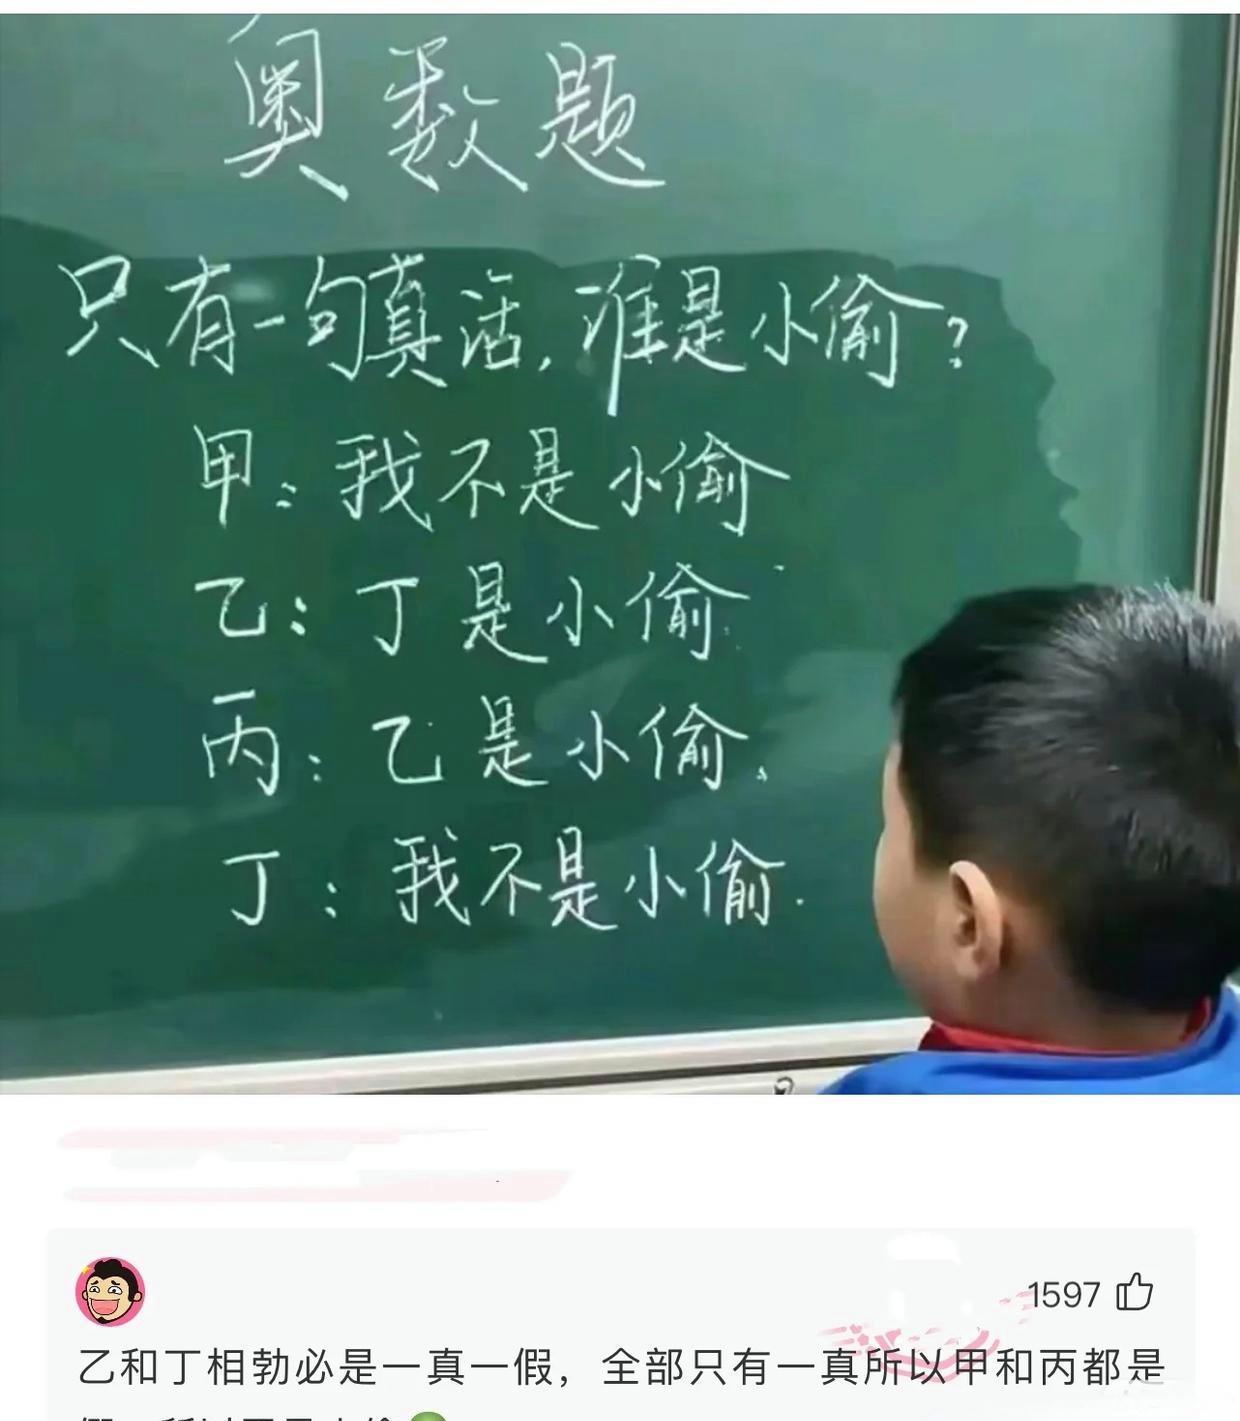 奥数题
只有一句真话,谁是小偷?
甲:我不是小偷
乙:丁是小偷
丙:乙是小偷.
丁:我不是小偷.
1597
乙和丁相勃必是一真一假，全部只有一真所以甲和丙都是